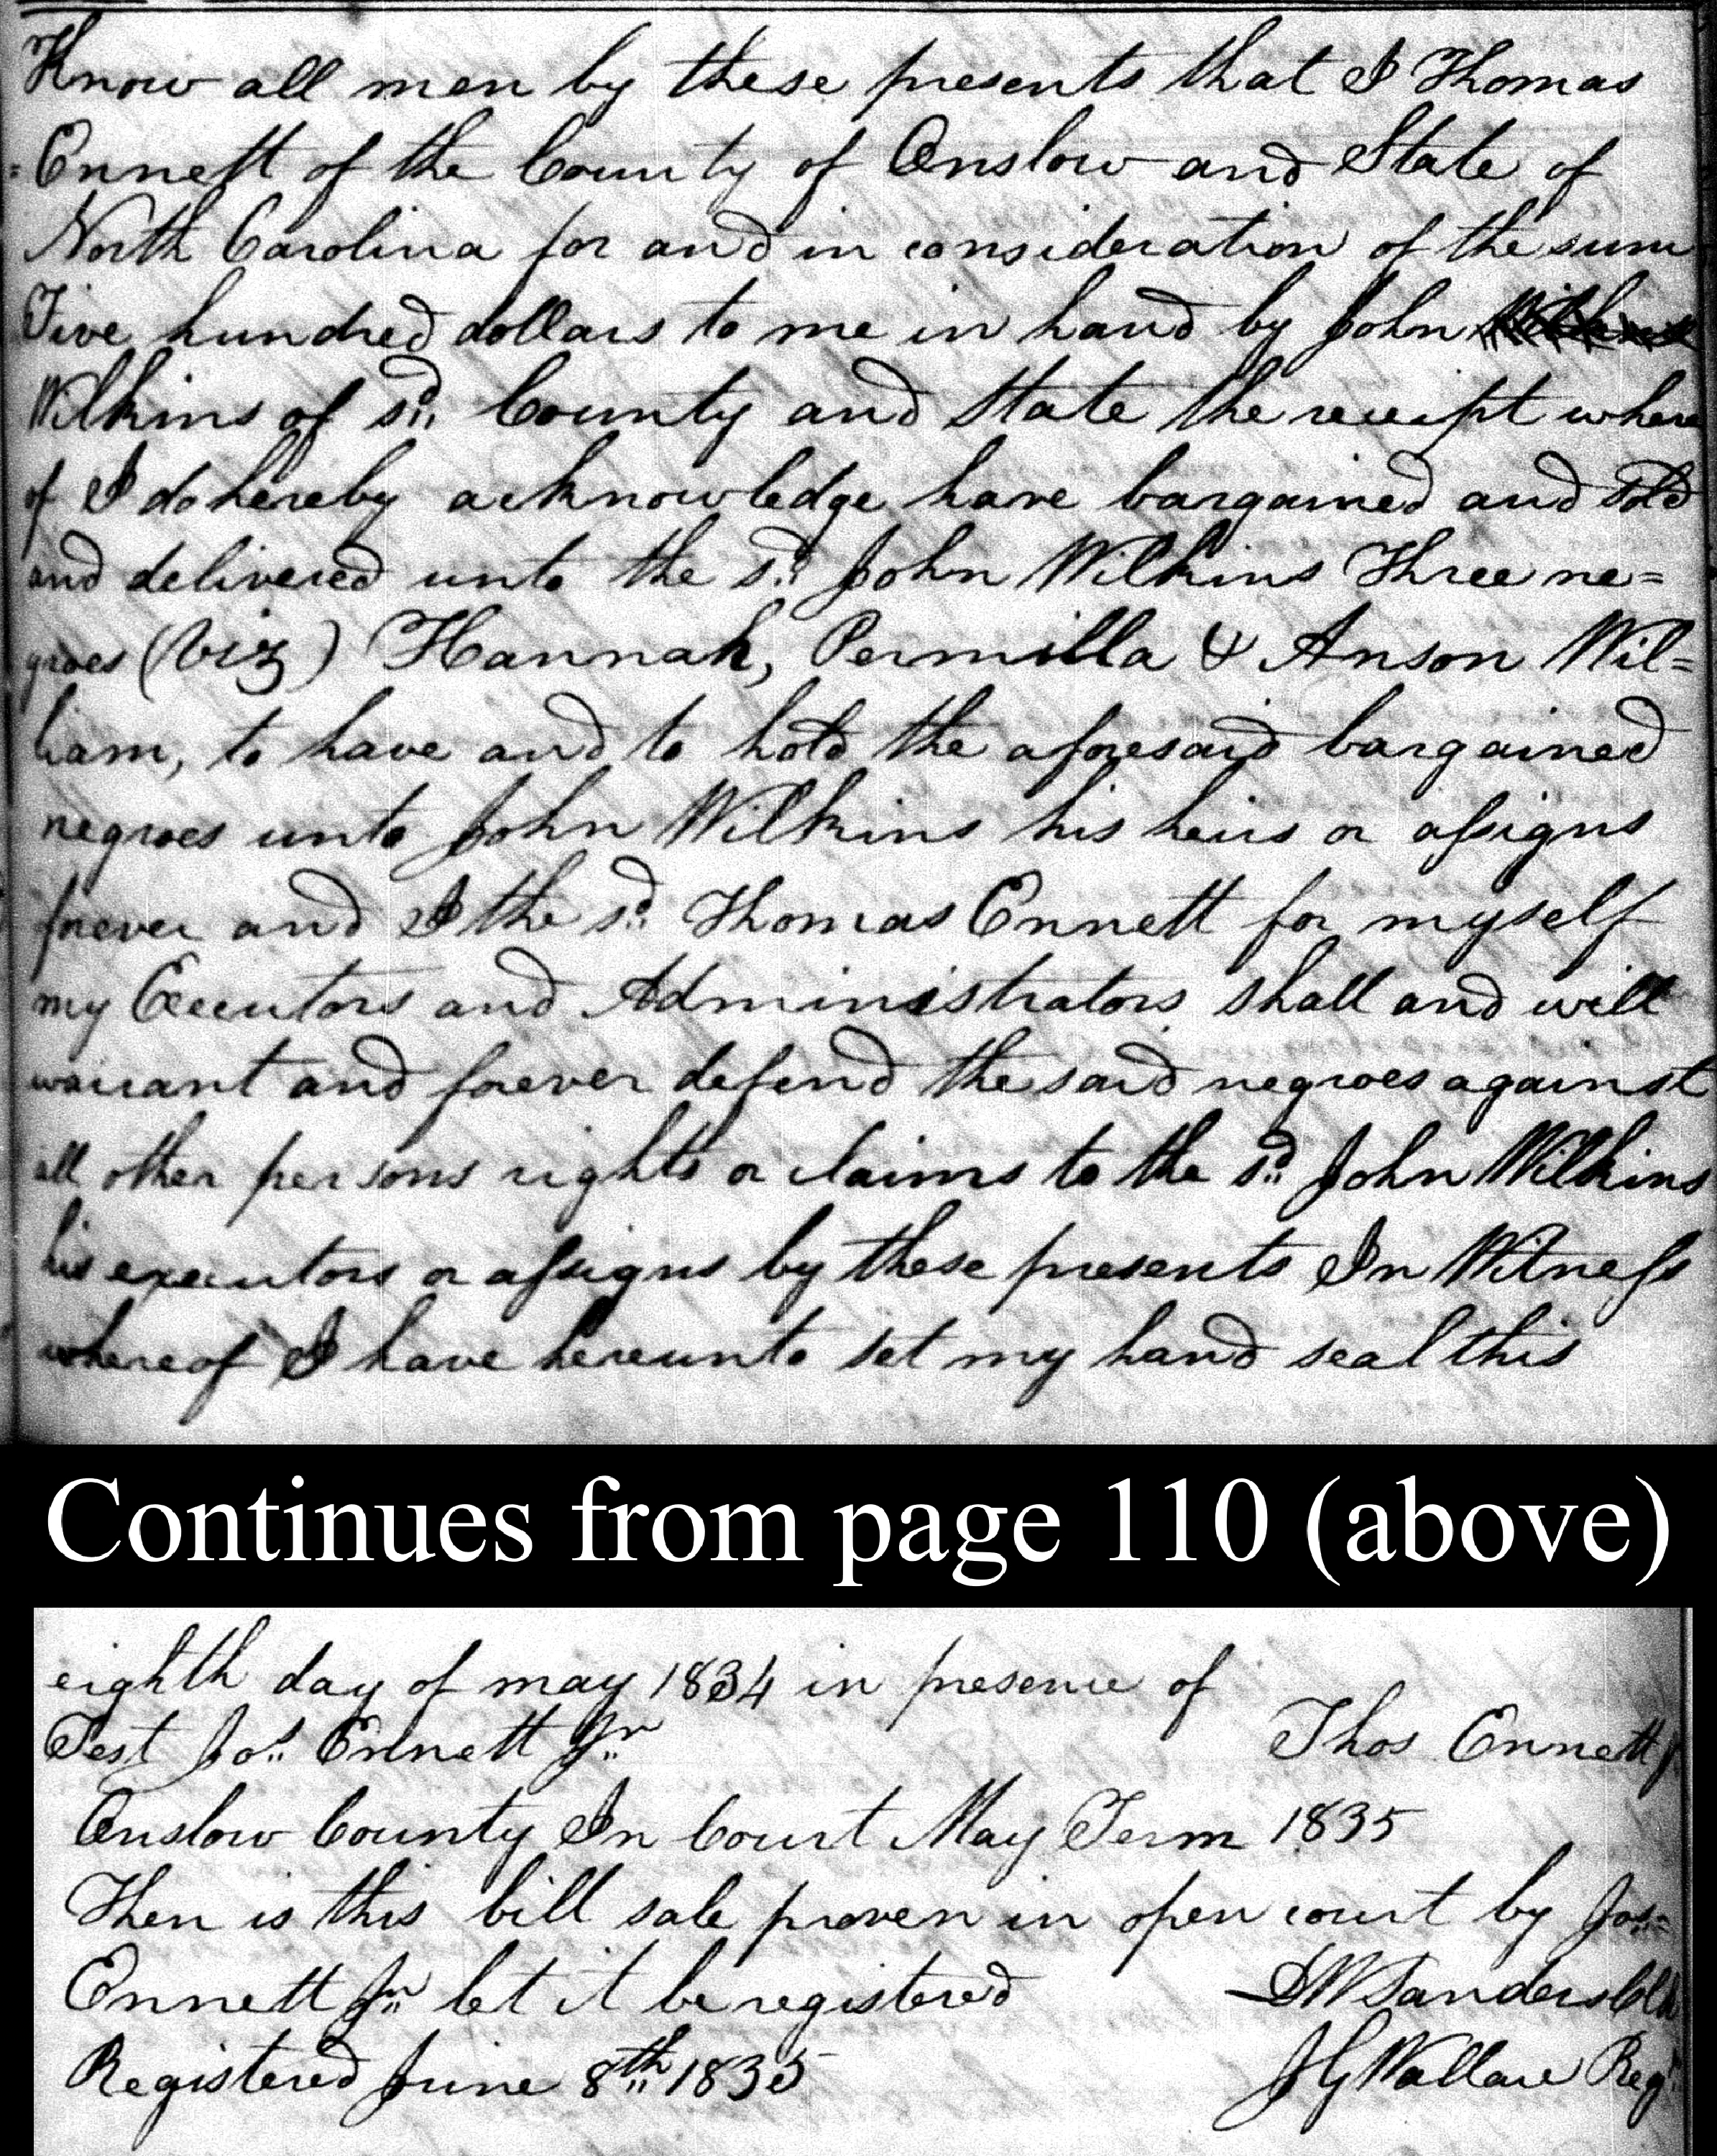 Know all men by these presents that I Thomas
Ennett of the County of Onslow and State of
North Carolina for and in consideration of the sum
Five hundred dollars to me in hand by John
Wilkins of sd. County and State the receipt where
of I do hereby acknowledge have bargained and sold
and delivered unto the sd. John Wilkins Three ne=
groes (viz) Hannah, Permilla & Anson Wil=
liam, to have and to hold the aforesaid bargained
negroes unto John Wilkins his heirs or assigns
forever and I the sd. Thomas Ennett for myself
my Executors and Administrators shall and will
warrant and forever defend the said negroes against
all other persons rights or claims to the sd. John Wilkins
his executors or assigns by these presents In Witness
whereof I have hereunto set my hand seal this
Continues from page 110 (above)
eighth day of may 1834 in presence of
Test Jos. Ennett Jr. Thos Ennett
Onslow County In Court May Term 1835
Then is this bill sale proven in open court by Jos.
Ennett Jr. let it be registered DW Sanders Clk
Registered June 8th 1835 JG Wallace Regr.